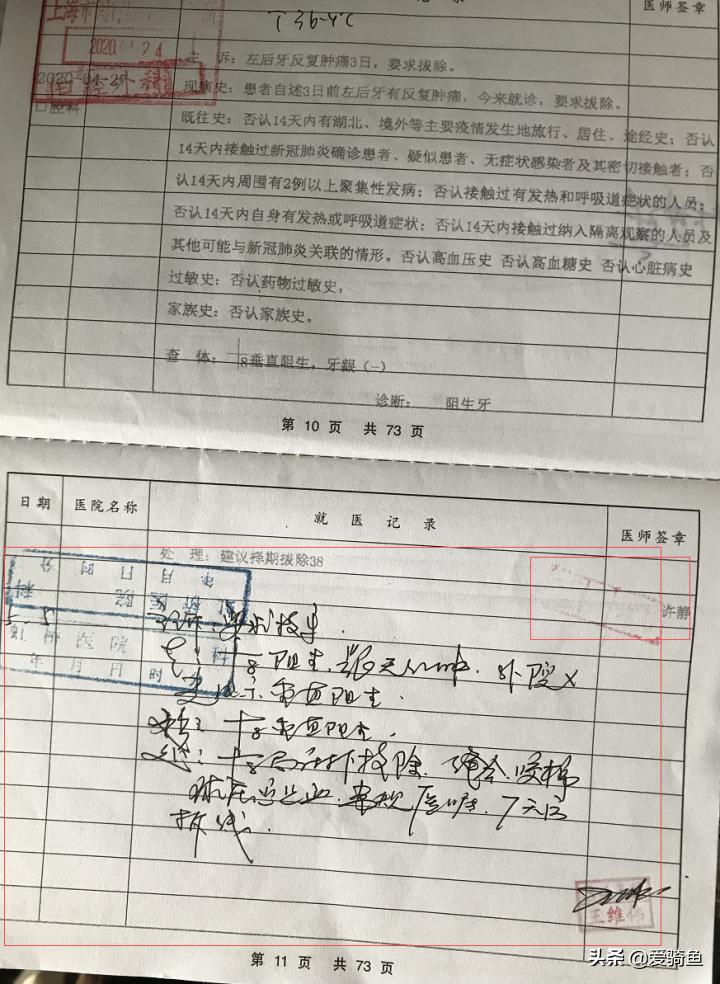 记 录
医师签章
T 36.4℃
上海市
2020 04 24
2020-04-24
口腔科
主 诉：左后牙反复肿痛3日，要求拔除。
现病史：患者自述3日前左后牙有反复肿痛，今来就诊，要求拔除。
既往史：否认14天内有湖北、境外等主要疫情发生地旅行、居住、途经史；否认
14天内接触过新冠肺炎确诊患者、疑似患者、无症状感染者及其密切接触者；否
认14天内周围有2例以上聚集性发病；否认接触过有发热和呼吸道症状的人员；
否认14天内自身有发热或呼吸道症状；否认14天内接触过纳入隔离观察的人员及
其他可能与新冠肺炎关联的情形。否认高血压史 否认高血糖史 否认心脏病史
过敏史：否认药物过敏史，
家族史：否认家族史。
查 体： 8垂直阻生，牙龈（-）
诊断： 阻生牙
第 10 页 共 73 页
日期 医院名称 就 医 记 录 医师签章
处 理：建议择期拔除38
许静
年 月 日 时 分
虹桥医院 科
年 月 日 时
5 5
主诉：要求拔牙．
8阻生 外院X
垂直阻生．
8垂直阻生．
8局麻下拔除
常规医嘱．7天后
拆线．
王维伟
第 11 页 共 73 页
头条 @爱骑鱼